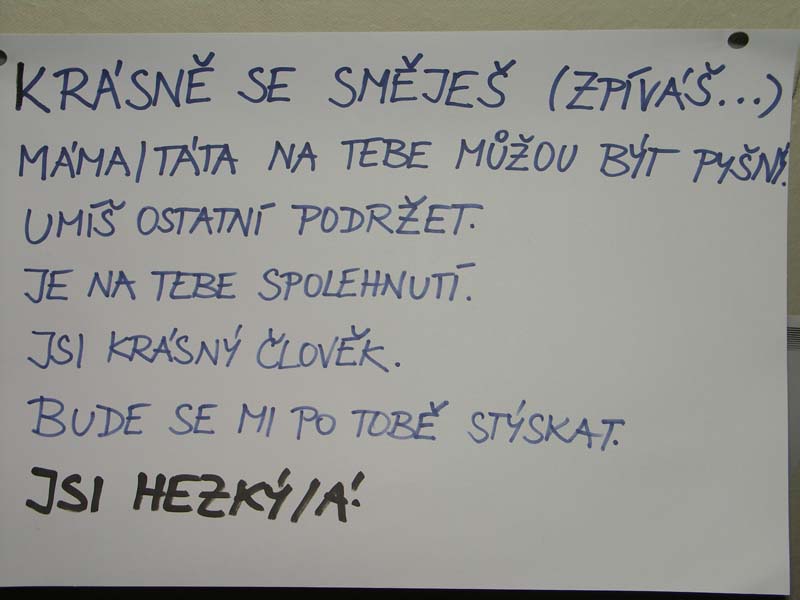 KRÁSNĚ SE SMĚJEŠ (ZPÍVÁŠ...)
MÁMA/TÁTA NA TEBE MŮŽOU BÝT PYŠNÝ.
UMÍŠ OSTATNÍ PODRŽET.
JE NA TEBE SPOLEHNUTÍ.
JSI KRÁSNÝ ČLOVĚK.
BUDE SE MI PO TOBĚ STÝSKAT.
JSI HEZKÝ/Á!